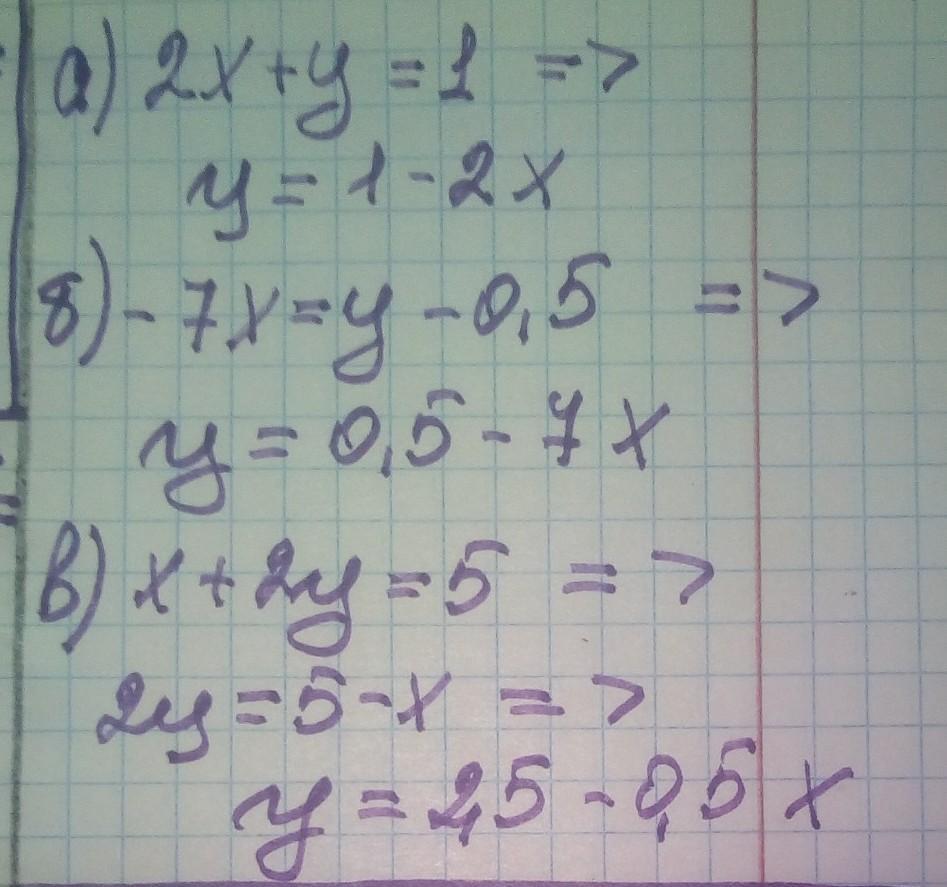 а) 2x+y=1 =>
y=1-2x
б) -7x=y-0,5 =>
y=0,5-7x
в) x+2y=5 =>
2y=5-x =>
y=2,5-0,5x